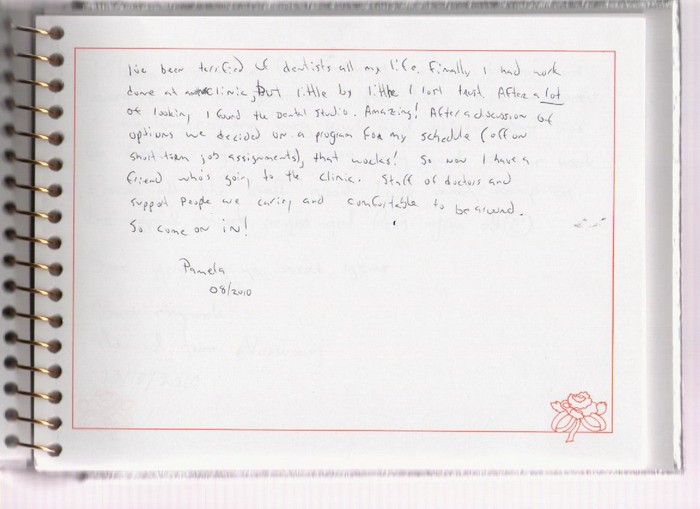 I've been terrified of dentists all my life. Finally I had work
done at clinic, but little by little I lost trust. After a lot
of looking I found the Dental Studio. Amazing! After a discussion of
options we decided on a program for my schedule (off on
short-term job assignments), that works! So now I have a
friend who's going to the clinic. Staff of doctors and
support people are caring and comfortable to be around.
So come on in!
Pamela
08/2010